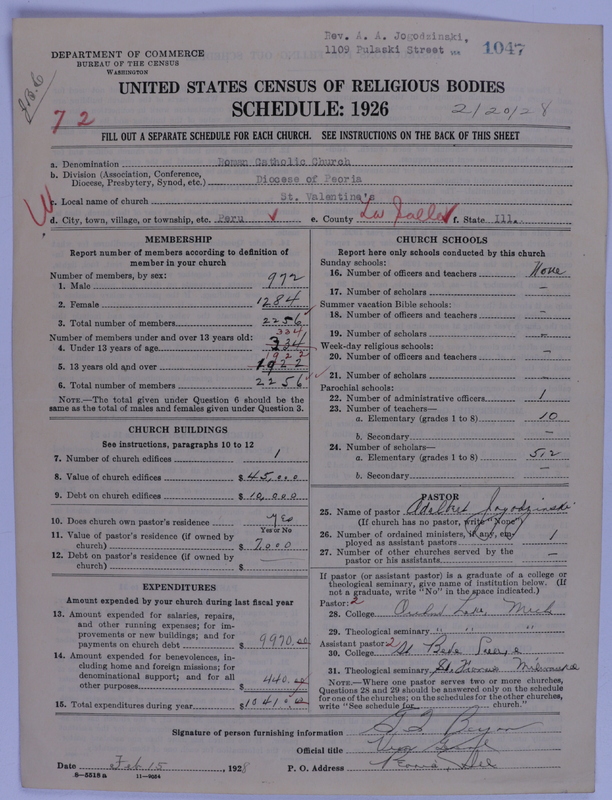 Rev. A. A. Jogodzinski,
1109 Pulaski Street
1047
DEPARTMENT OF COMMERCE
BUREAU OF THE CENSUS
WASHINGTON
UNITED STATES CENSUS OF RELIGIOUS BODIES
SCHEDULE: 1926
2/20/28
72
FILL OUT A SEPARATE SCHEDULE FOR EACH CHURCH. SEE INSTRUCTIONS ON THE BACK OF THIS SHEET
a. Denomination Roman Catholic Church
b. Division (Association, Conference, Diocese, Presbytery, Synod, etc.) Diocese of Peoria
c. Local name of church St. Valentine's
d. City, town, village, or township, etc. Peru e. County La Salle f. State Ill.
MEMBERSHIP
Report number of members according to definition of
member in your church
Number of members, by sex:
1. Male 972
2. Female 1284
3. Total number of members 2256
Number of members under and over 13 years old:
4. Under 13 years of age 334 334
5. 13 years old and over 1922 1922
6. Total number of members 2256
NOTE.—The total given under Question 6 should be the
same as the total of males and females given under Question 3.
CHURCH BUILDINGS
See instructions, paragraphs 10 to 12
7. Number of church edifices 1
8. Value of church edifices $45,000
9. Debt on church edifices $10,000
10. Does church own pastor's residence Yes
Yes or No
11. Value of pastor's residence (if owned by
church) $ 7,000
12. Debt on pastor's residence (if owned by
church) $ —
EXPENDITURES
Amount expended by your church during last fiscal year
13. Amount expended for salaries, repairs,
and other running expenses; for im-
provements or new buildings; and for
payments on church debt $ 9970.00
14. Amount expended for benevolences, in-
cluding home and foreign missions; for
denominational support; and for all
other purposes $ 440.00
15. Total expenditures during year $10410.00
CHURCH SCHOOLS
Report here only schools conducted by this church
Sunday schools:
16. Number of officers and teachers None
17. Number of scholars —
Summer vacation Bible schools:
18. Number of officers and teachers —
19. Number of scholars —
Week-day religious schools:
20. Number of officers and teachers —
21. Number of scholars —
Parochial schools:
22. Number of administrative officers 1
23. Number of teachers—
a. Elementary (grades 1 to 8) 10
b. Secondary —
24. Number of scholars—
a. Elementary (grades 1 to 8) 512
b. Secondary —
PASTOR
25. Name of pastor Adalbert Jogodzinski
(If church has no pastor, write "None")
26. Number of ordained ministers, if any, em-
ployed as assistant pastors 1
27. Number of other churches served by the
pastor or his assistants —
If pastor (or assistant pastor) is a graduate of a college or
theological seminary, give name of institution below. (If
not a graduate, write "No" in the space indicated.)
Pastor: 2
28. College Orchard Lake, Mich
29. Theological seminary " " "
Assistant pastor: 2
30. College St Bede
31. Theological seminary St. Francis Milwaukee
NOTE.—Where one pastor serves two or more churches,
Questions 28 and 29 should be answered only on the schedule
for one of the churches; on the schedules for the other churches,
write "See schedule for church."
Signature of person furnishing information
Official title
Date Feb 15, 1928 P. O. Address Peoria, Ill
8—5518 a 11—9054